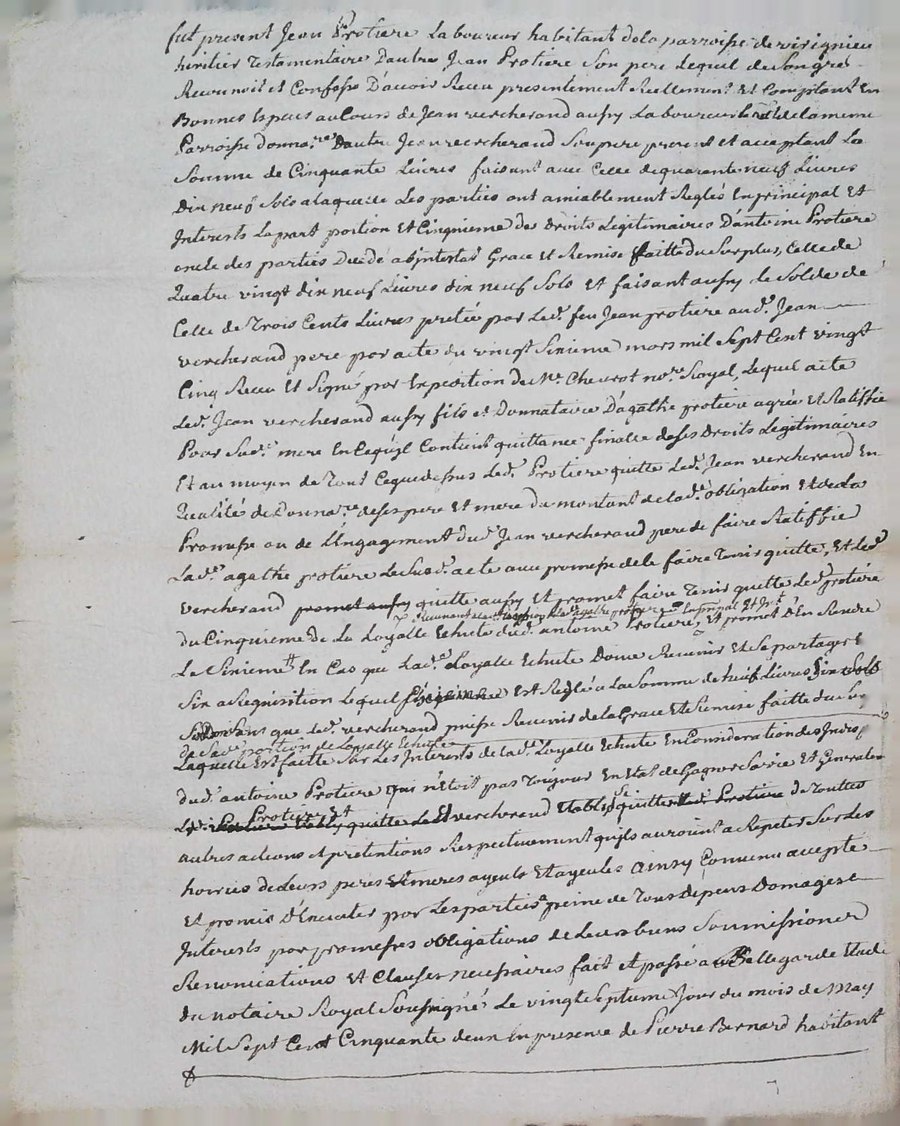 fut present Jean Protiere Laboureur habitant de la parroisse de virignieu
heritier Testamentaire D'autre Jean Protiere Son pere Lequel de Son gres
Reconnoit et Confesse D'avoir Receu presentement Reellement Et Comptant En
Bonnes Especes au Cours de Jean vercherand aussy Laboureur de la meme
Parroisse donnare. D'autre Jean vercherand Son pere present et acceptant La
Somme de Cinquante Livres faisant avec Celle de quarante neuf Livres
Dix neuf Sols a laquelle Les parties ont amiablement Reglés En principal Et
Interests La part portion Et Cinquieme des Droits Legitimaires D'antoine Protiere
oncle des parties Decedé abjntestat Grace Et Remise faitte du Surplus, Celle de
Quatre vingt dix neuf Livres dix neuf Sols Et faisant aussy Le Solde de
Celle de Trois Cents Livres pretée par Led. feu Jean protiere aud. Jean
vercherand pere par acte du vingt Sixieme mars mil Sept Cent vingt
Cinq Receu Et Signé par Expedition de Me. Cheurot nore. Royal, Lequel acte
Led. Jean vercherand aussy fils et Donnataire D'agathe protiere agrée Et Ratiffie
Pour Sad. mere En Ce qu'il Contient quittance finalle de Ses Droits Legitimaires
Et au moyen de Tout Ce que dessus Led. Protiere quitte Led. Jean vercherand En
Qualité de Donnare. de Ses pere Et mere du montant de lad. obligation Et de la
Promesse ou de L'Engagement dud. Jean vercherand pere de faire Ratiffie
Lad. agathe protiere Le Susd. acte avec promesse de le faire Tenir quitte, Et Led.
vercherand promet aussy quitte aussy Et promet faire Tenir quitte Led. protiere
agathe protiere en principal Et Jnt.
du Cinquieme de La Loyalle Echute dud. antoine Protiere, Et promet D'En Rendre
Le Sixieme En Cas que Lad. Loyalle Echute Doive Revenir Et Se partager
Six a Requisition Lequel Est Reglé a La Somme de neuf Livres Dix Sols
Sans que Led. vercherand puisse Revenir de la Grace Et Remise faitte du
de Sad. portion de Loyalle Echute
Laquelle Est faitte Sur Les Interests de Lad. Loyalle Echute En Consideration de
dud. antoine Protiere qui n'Etoit pas Toujour En Etat de Gagner Sa vie Et Generalem
Led. Protiere Et vercherand quitte de Touttes
autres actions Et pretentions Respectivement qu'ils auroint a Repeter Sur Les
hoiries de Leurs peres Et meres ayeuls Et ayeules Ainsy Convenu accepte
Et promis D'Executer par Les parties a peine de Tous depens Domages Et
Interests par promesses obligations de Leurs biens Soumissions
Renonciations Et Clauses necessaires fait et passé a Bellegarde Etude
du notaire Royal Soussigné Le vingt Septieme Jour du mois de May
Mil Sept Cent Cinquante deux En presence de Pierre Bernard habitant